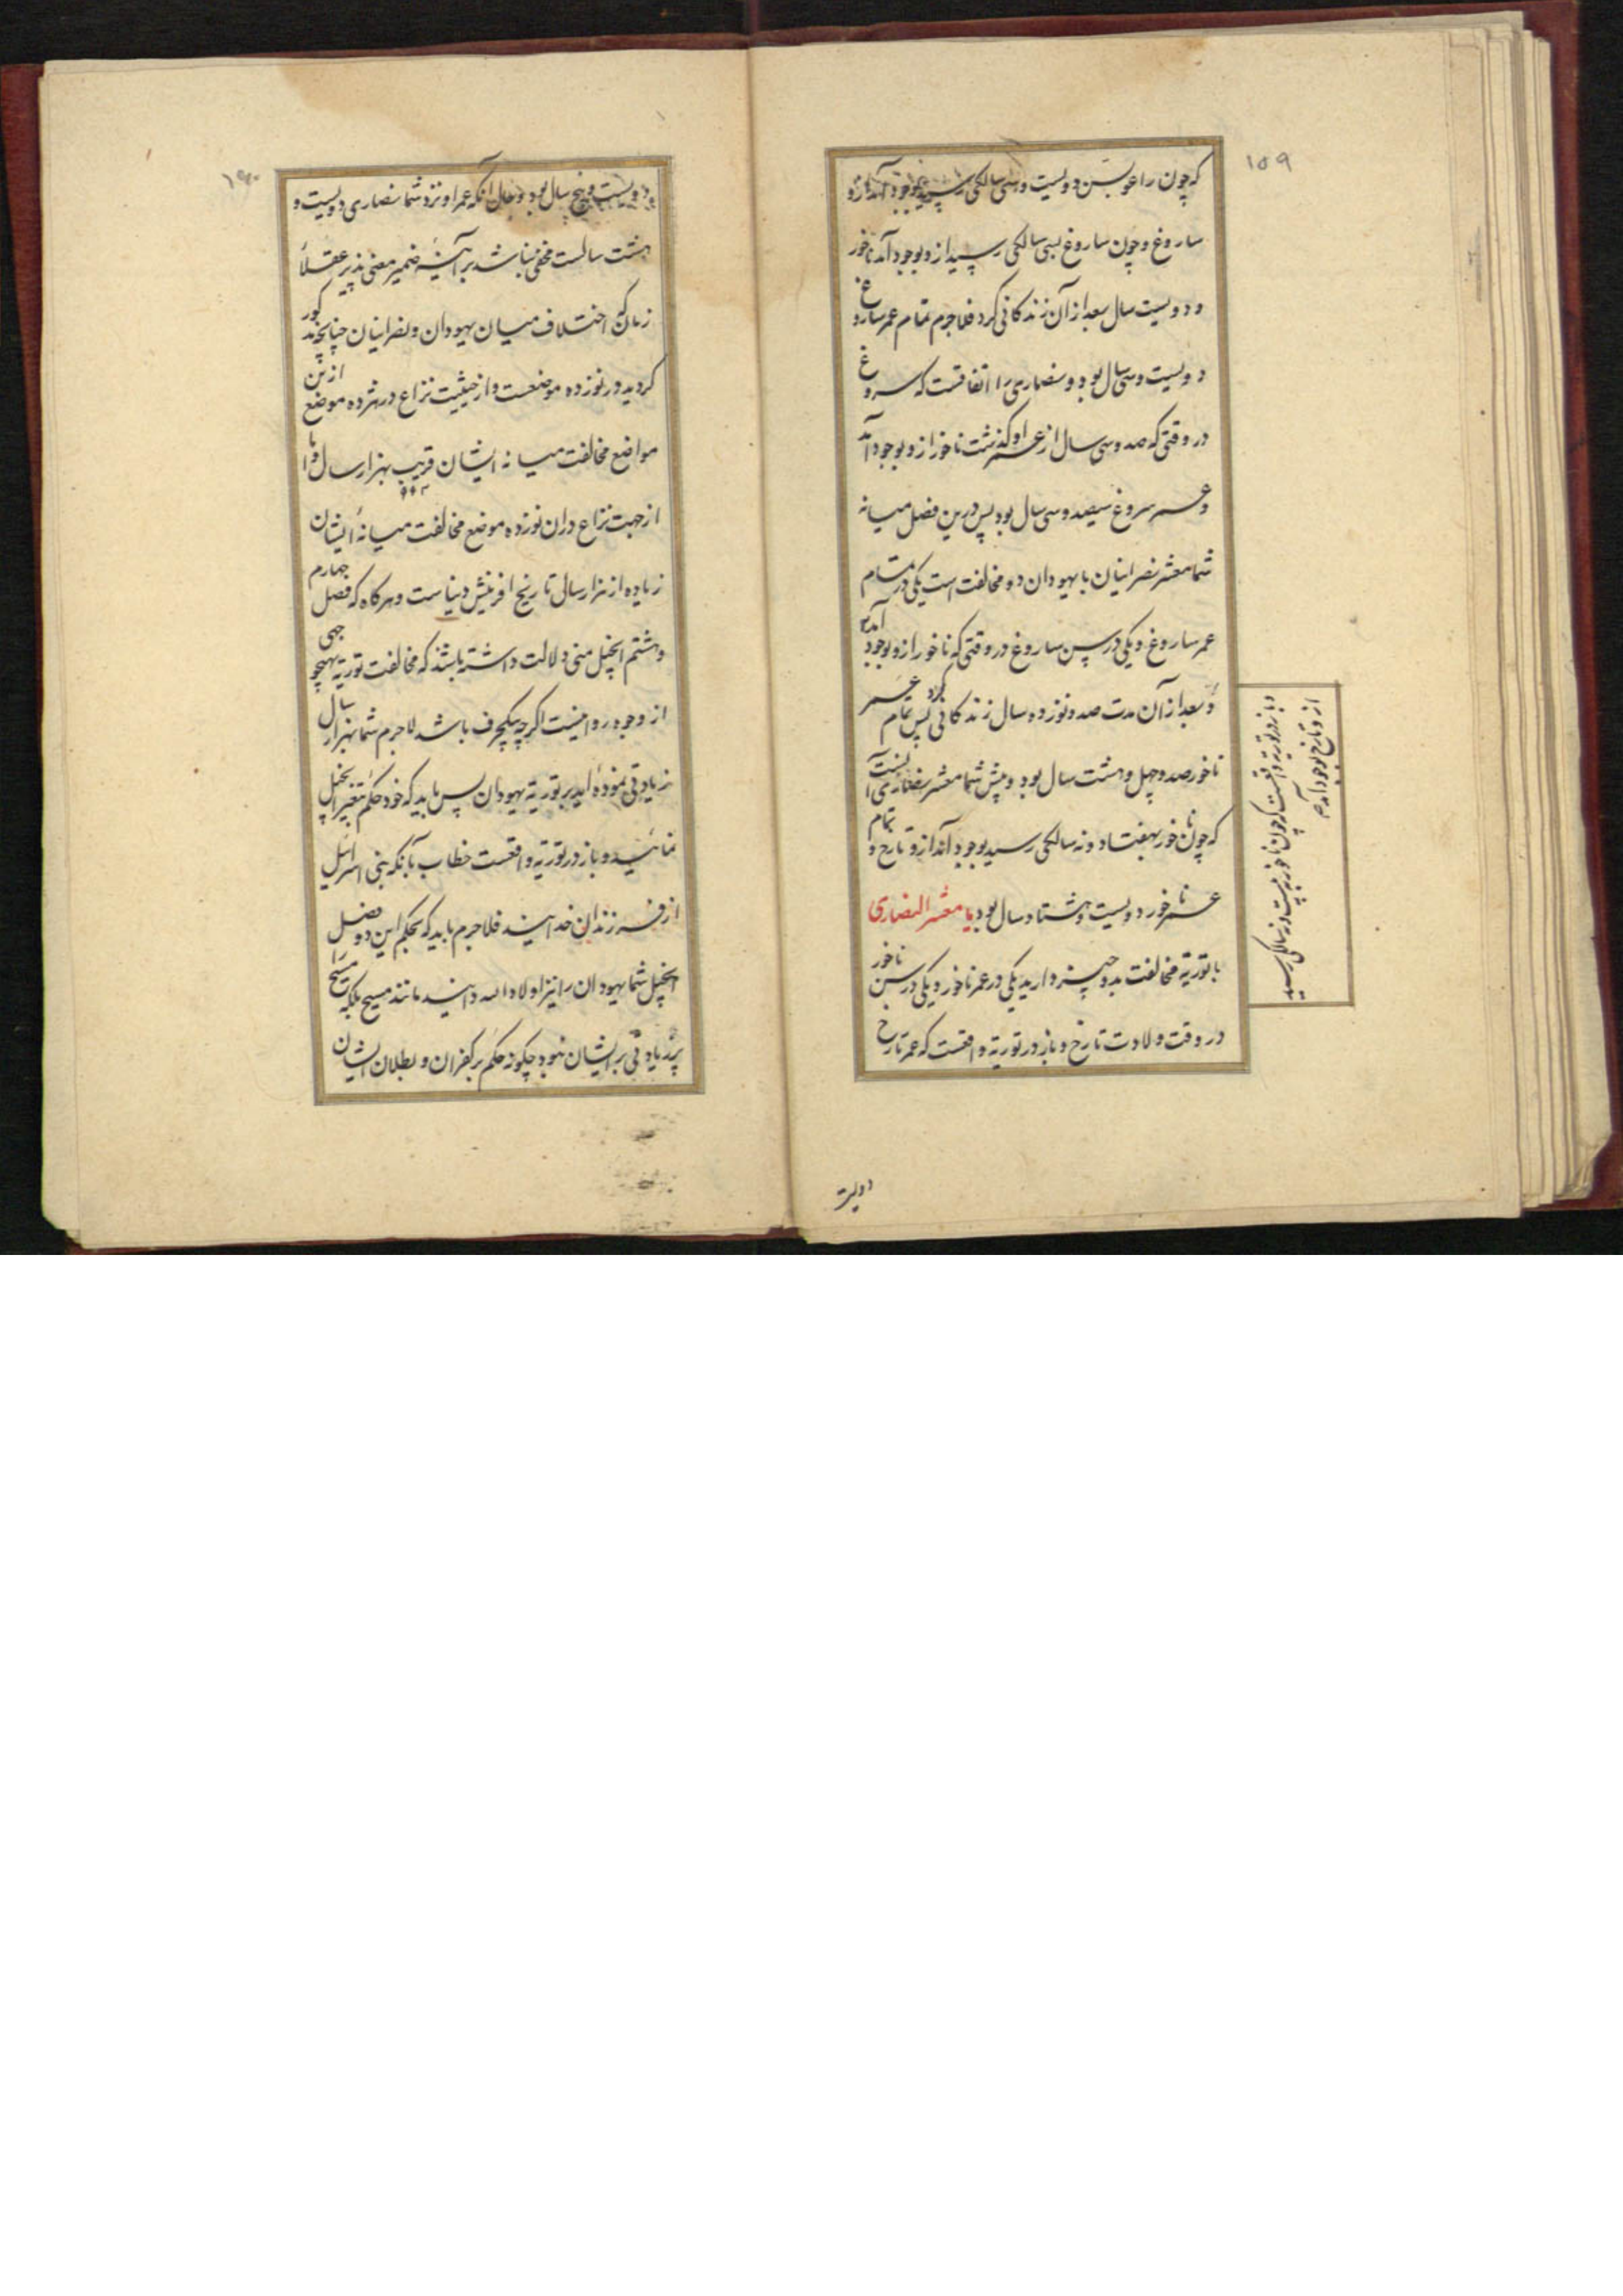 ۱۵۹
که چون راعو بسن دویست و سی سالگی رسید بوجود آمد ازو
ساروغ و چون ساروغ بسی سالگی رسید از و بوجود آمد ناخور
و دویست سال بعد از آن زندگانی کرد فلاجرم تمام عمر ساروغ
دویست و سی سال بود و نصاری را اتفاقست که سروغ
در وقتی که صد و سی سال از عمر او گذشت ناخور از و بوجود آمد
و عمر سروغ سیصد و سی سال بود پس درین فصل میانه
شما معشر نصرانیان با یهودان دو مخالفت است یکی در تمام
عمر ساروغ و یکی در سن ساروغ در وقتی که ناخور از و بوجود آمد
و بعد از آن مدت صد و نوزده سال زندگانی کرد پس تمام عمر
ناخور صد و چهل و هشت سال بود و پیش شما معشر نصاری آنست
که چون ناخور بهفتاد و نه سالگی رسید بوجود آمد ازو تارخ و تمام
عمر ناخور دویست و هشتاد سال بود یا معشر النصاری
با توریة مخالفت بدو چیز دارید یکی در عمر ناخور و یکی در سن ناخور
در وقت ولادت تارخ و باز در توریة واقعست که عمر تارخ
و باز در توریة واقعست که چون ناخور به بیست و نه سالگی رسید
از و تارخ بوجود آمد
دویست
۱۶۰
دویست و پنج سال بود و حال آنکه عمر او نزد شما نصاری دویست و
هشت سالست مخفی نباشد بر آینه ضمیر مضی پذیر عقلاء
زمان که اختلاف میان یهودان و نصرانیان چنانچه مذکور
گردید در نوزده موضعست و از حیثیت نزاع در هژده موضع ازین
مواضع مخالفت میانه ایشان قریب بهزار سال و اما
۹۹۲
از جهت نزاع در آن نوزده موضع مخالفت میانهٔ ایشان
زیاده از هزار سالی تاریخ افرینش دنیاست و هرگاه که فصل چهارم
و هشتم انجیل متی دلالت داشته باشد که مخالفت توریة بهیچ وجهی
از وجوه روا نیست اگرچه بیکحرف باشد لاجرم شما بهزار سال
زیادتی نموده اید بر توریة یهودان پس باید که خود حکم بتغییر انجیل
نمائید و باز در توریة واقعست خطاب بآنکه بنی اسرائیل
از فرزندان خدایند فلاجرم باید که بحکم این دو فصل
انجیل شما یهودان را نیز اولاد الله دانید مانند مسیح بلکه مسیح را
پر زیادتی بر ایشان نبود چگونه حکم بر کفران و بطلان ایشان